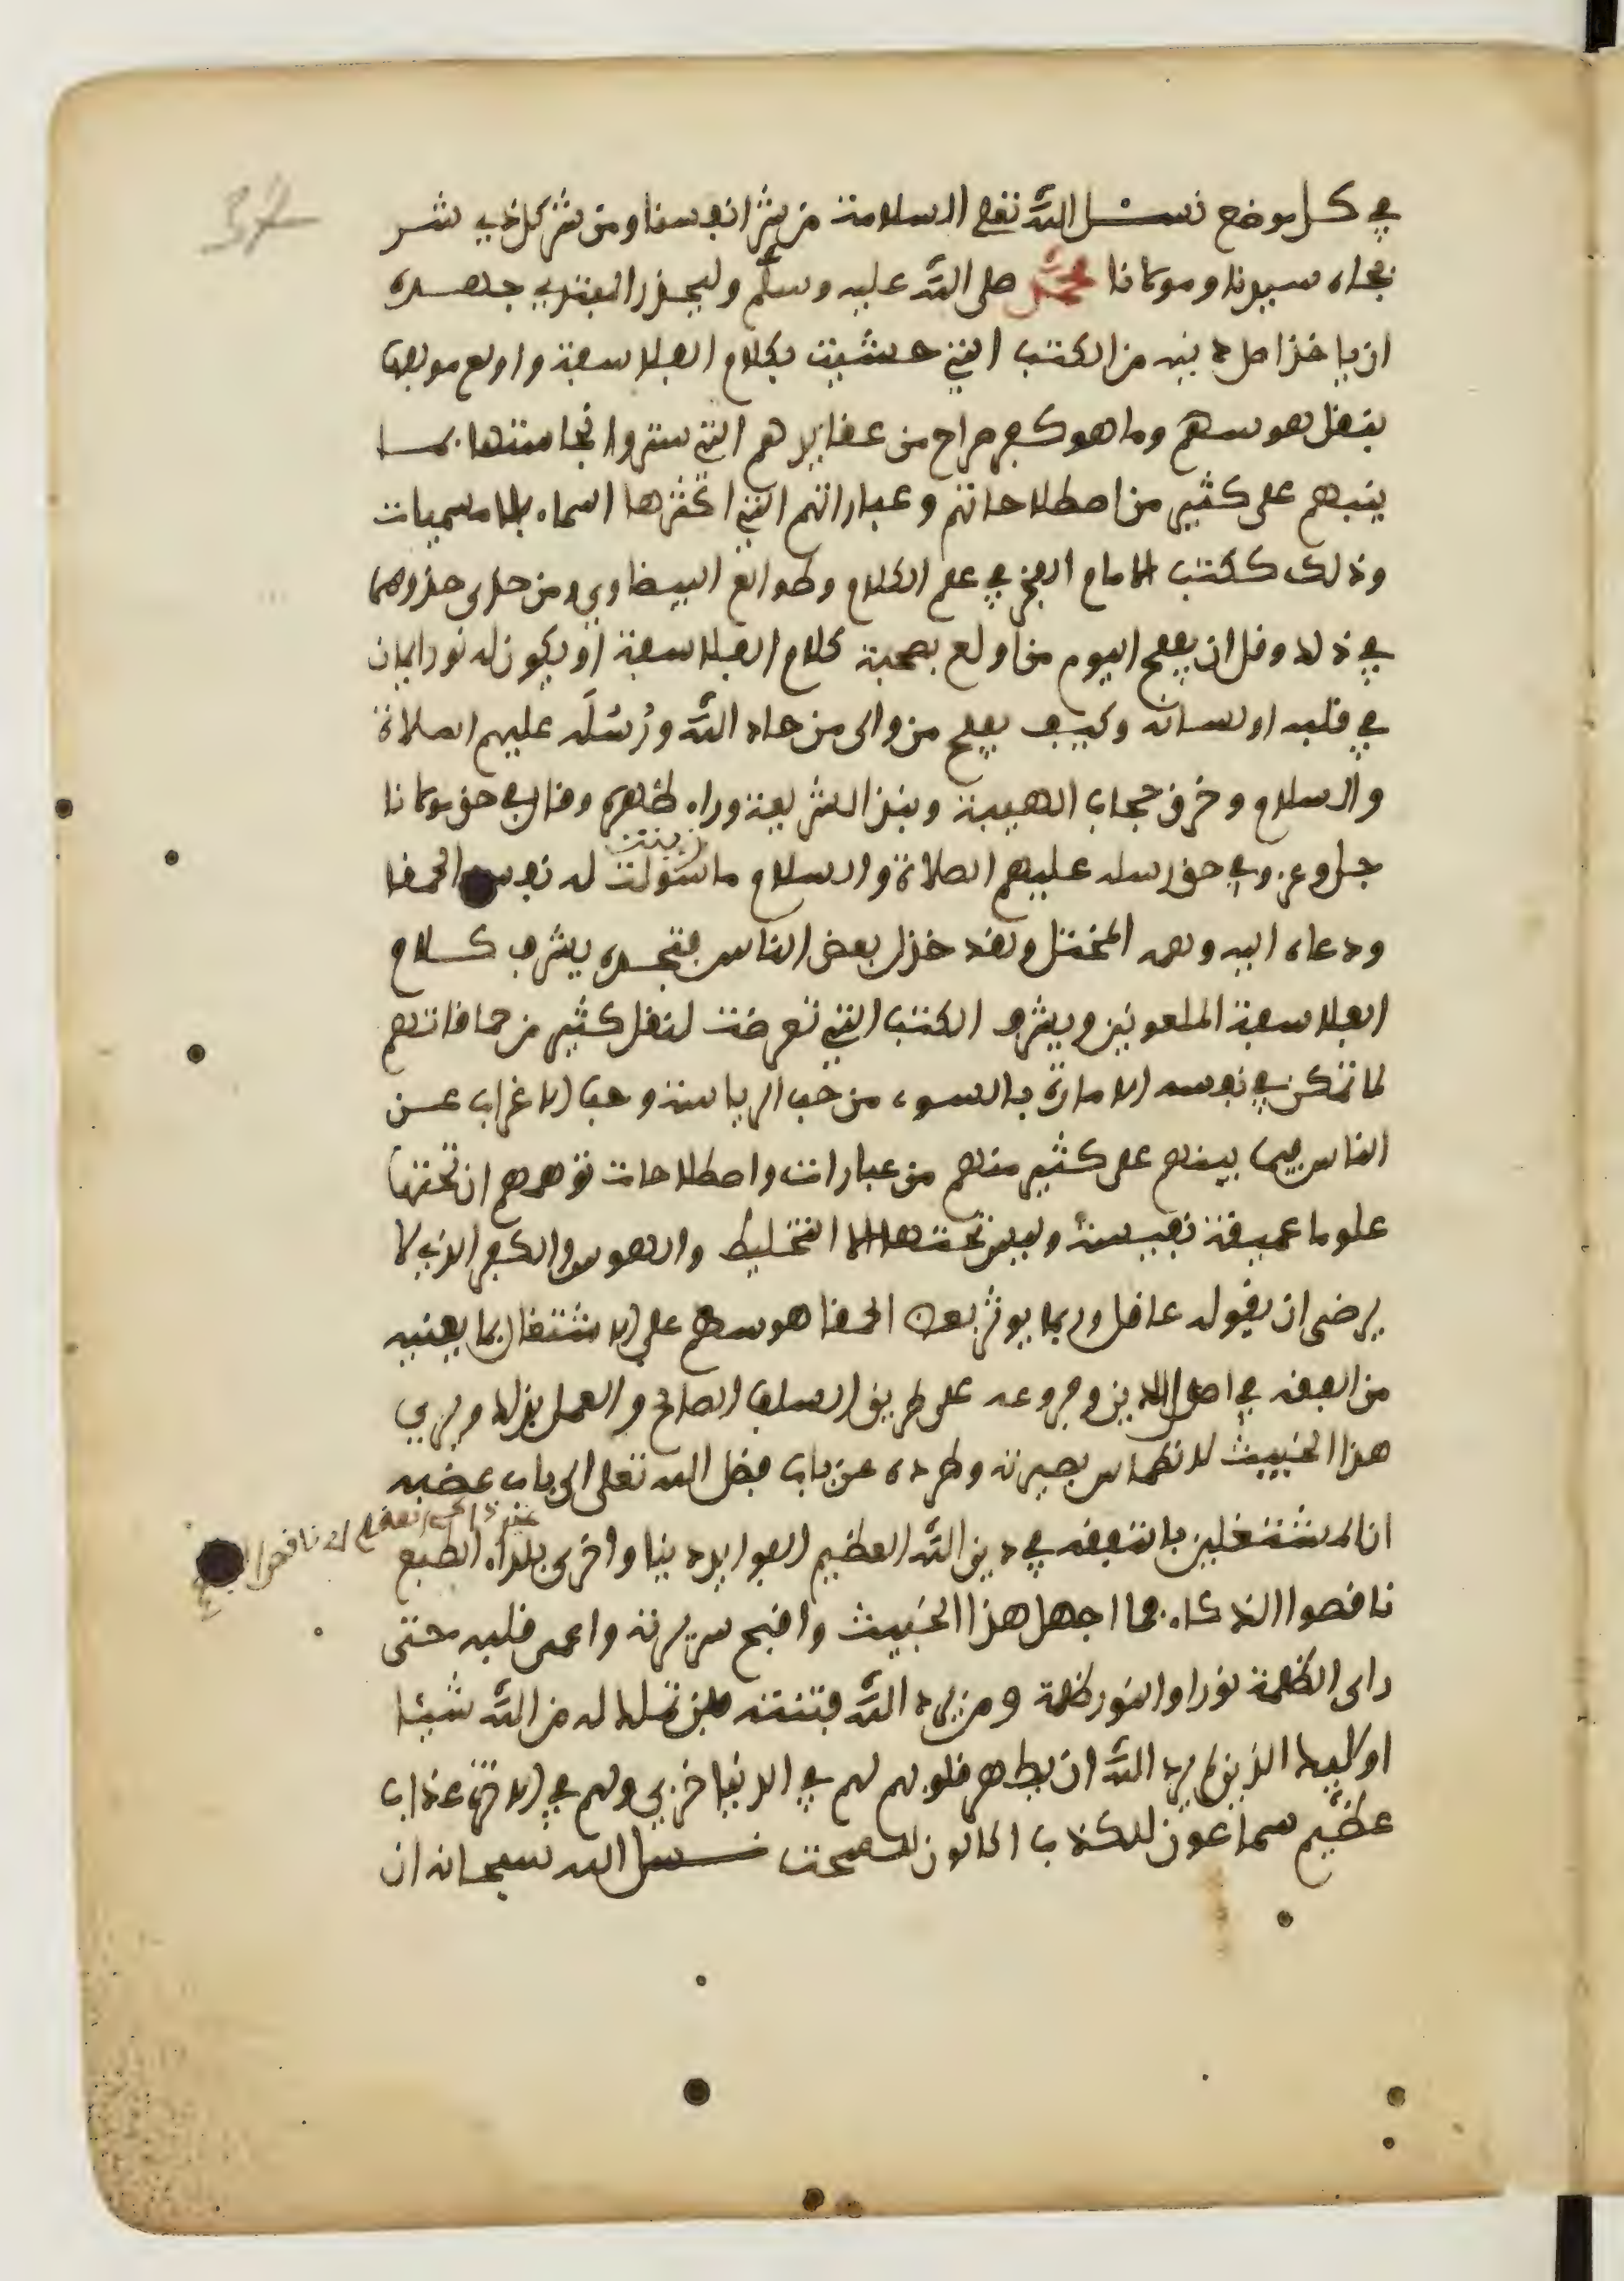 في كل موضع نسئل الله تعلى السلامة من شر انفسنا ومن شر كل ذي شر
بجاه سيدنا ومولانا محمد صلى الله عليه وسلم وليحذر المبتدي جهده
ان ياخذ اصل دينه من الكتب التي حشيت بكلام الفلاسفة واولع مولفها
بنقل هوسهم وما هو كفر صراح من عقايدهم التي ستروا نجاستها بما
ينبهم على كثير من اصطلاحاتهم وعباراتهم التي اكثرها اسماء بلا مسميات
وذلك ككتب الامام الفخر في علم الكلام وطوالع البيضاوي ومن حذى حذوهما
في ذلك وقل ان يفلح اليوم من اولع بصحبة كلام الفلاسفة او يكون له نور ايمان
في قلبه او لسانه وكيف يفلح من والى من حاد الله ورسله عليهم الصلاة
والسلام وخرق حجاب الهيبة ونبذ الشريعة وراء ظهره وقال في حق مولانا
جل وعز وفي حق رسله عليهم الصلاة والسلام ما سولت له نفسه الحمقا
زينت
ودعاه اليه وهمه المختل ولقد خذل بعض الناس فتجده يشرف كلام
الفلاسفة الملعونين ويشرف الكتب التي تعرضت لنقل كثير من حماقاتهم
لما تمكن في نفسه الامارة بالسوء من حب الرياسة وحب الاغراب عن
الناس بما ينبهم على كثير منهم من عبارات واصطلاحات توهمهم ان تحتها
علوما عميقة نفيسة وليس تحتها الا التخليط والهوس والكفر الذي لا
يرضى ان يقوله عاقل وربما يوثر بعض الحمقا هوسهم على الاشتغال بما يعنيه
من التفقه في اصل الدين وفروعه على طريق السلف الصالح والعمل بذلك ويرى
هذا الخبيث لانطماس بصيرته وطرده عن باب فضل الله تعلى الى باب غضبه
ان المشتغلين بالتفقه في دين الله العظيم الفوايد دنيا واخرى بلداء الطبع
ناقصوا الذكاء فما اجهل هذا الخبيث واقبح سريرته واعمى قلبه حتى
راى الظلمة نورا والنور ظلمة ومن يرد الله فتنته فلن تملك له من الله شيئا
اوليك الذين لم يرد الله ان يطهر قلوبهم لهم في الدنيا خزي ولهم في الاخرة عذاب
عظيم سماعون للكذب اكالون للسحت نسئل الله سبحانه ان